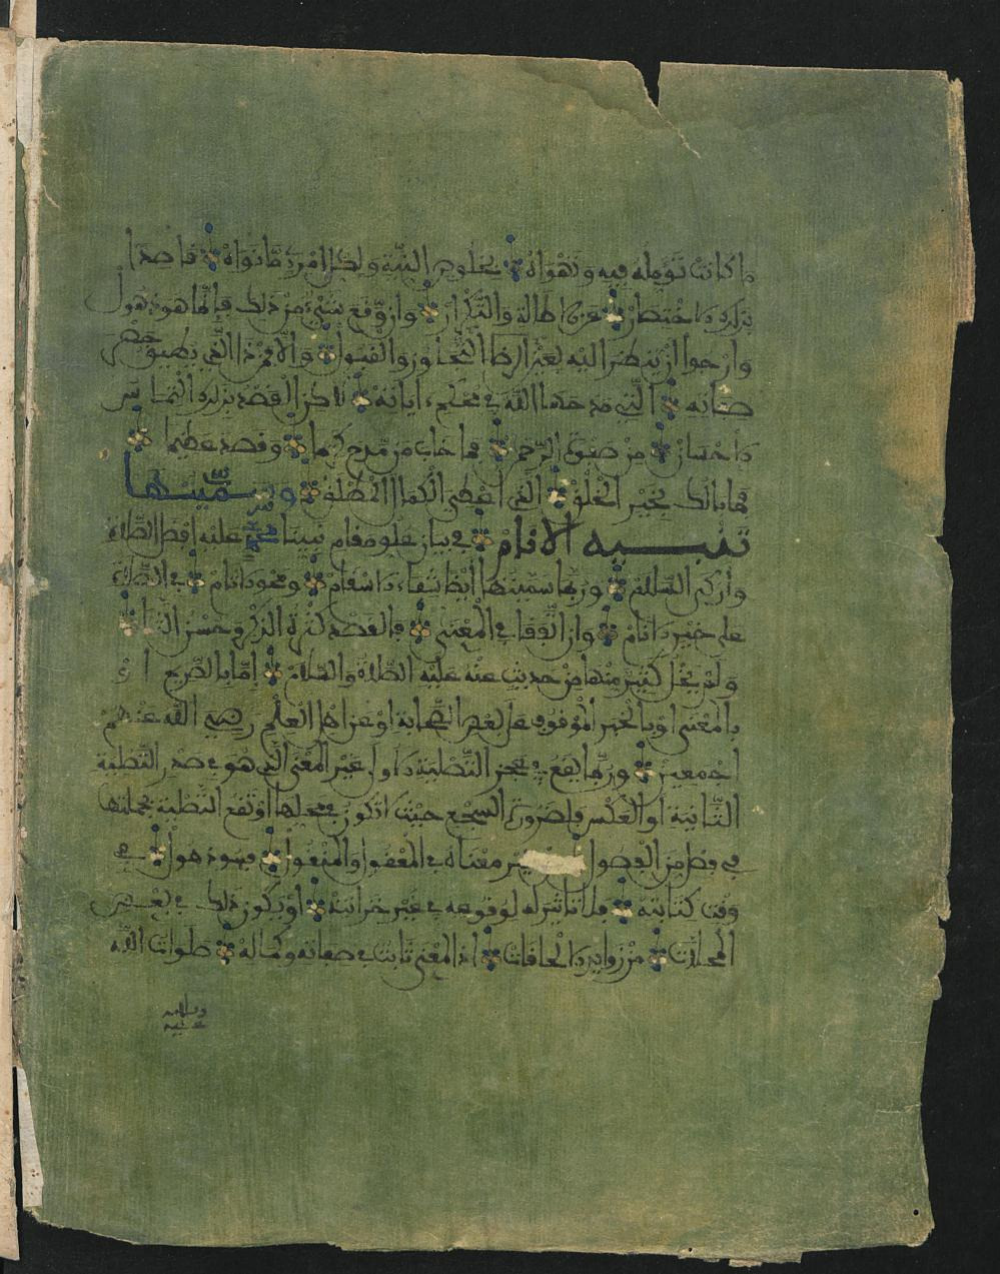 ما كانت تؤمله فيه وتهواه بخلوص النية ولكل امرئ ما نواه قاصدا
بذلك الاختصار عن الاطالة والتكرار وان وقع شيء من ذلك فانما هو ذهول
وارجوا ان ينظر اليه بعين الرضا التجاوز والقبول والا فمن ذا الذي يطيق حصر
صفاته التي مدحها الله في محكم اياته لاكن القصد بذلك التماس
الاحسان من صفوة الرحمن فما خاب من مدح كريما وقصد عظيما
فما بالك بخير الخلق الذي اعطي الكمال المطلق وقد سميتها
تنبيه الانام في بيان علو مقام نبينا محمد عليه افضل الصلاة
وازكى السلام وربما سميتها ايضا شفاء الاسقام ومحو الاثام في الصلاة
على خير الانام وان اتفقا في المعنى فالقصد كثرة الذكر وحسن الثناء
ولم يخل كثير منها من حديث عنه عليه الصلاة والسلام اما بالصريح او
بالمعنى او بالخبر الموقوف على بعض الصحابة او عن اهل العلم رضي الله عنهم
اجمعين وربما يقع في عجز التصلية الاولى غير المعنى الذي هو في صدر التصلية
الثانية او العكس فلضرورة السجع حيث اتكون في محلها او تقع التصلية بجملتها
في فصل من الفصول معناه في المعقول والمنقول فهو ذهول في
وقت كتابته فلا تاثير له لوقوعه في غير خزانته او يكون ذلك في بعض
المحلات من زوايد الالحاقات اذ المعنى ثابت في صفاته وكماله صلوات الله
وسلامه
عليه